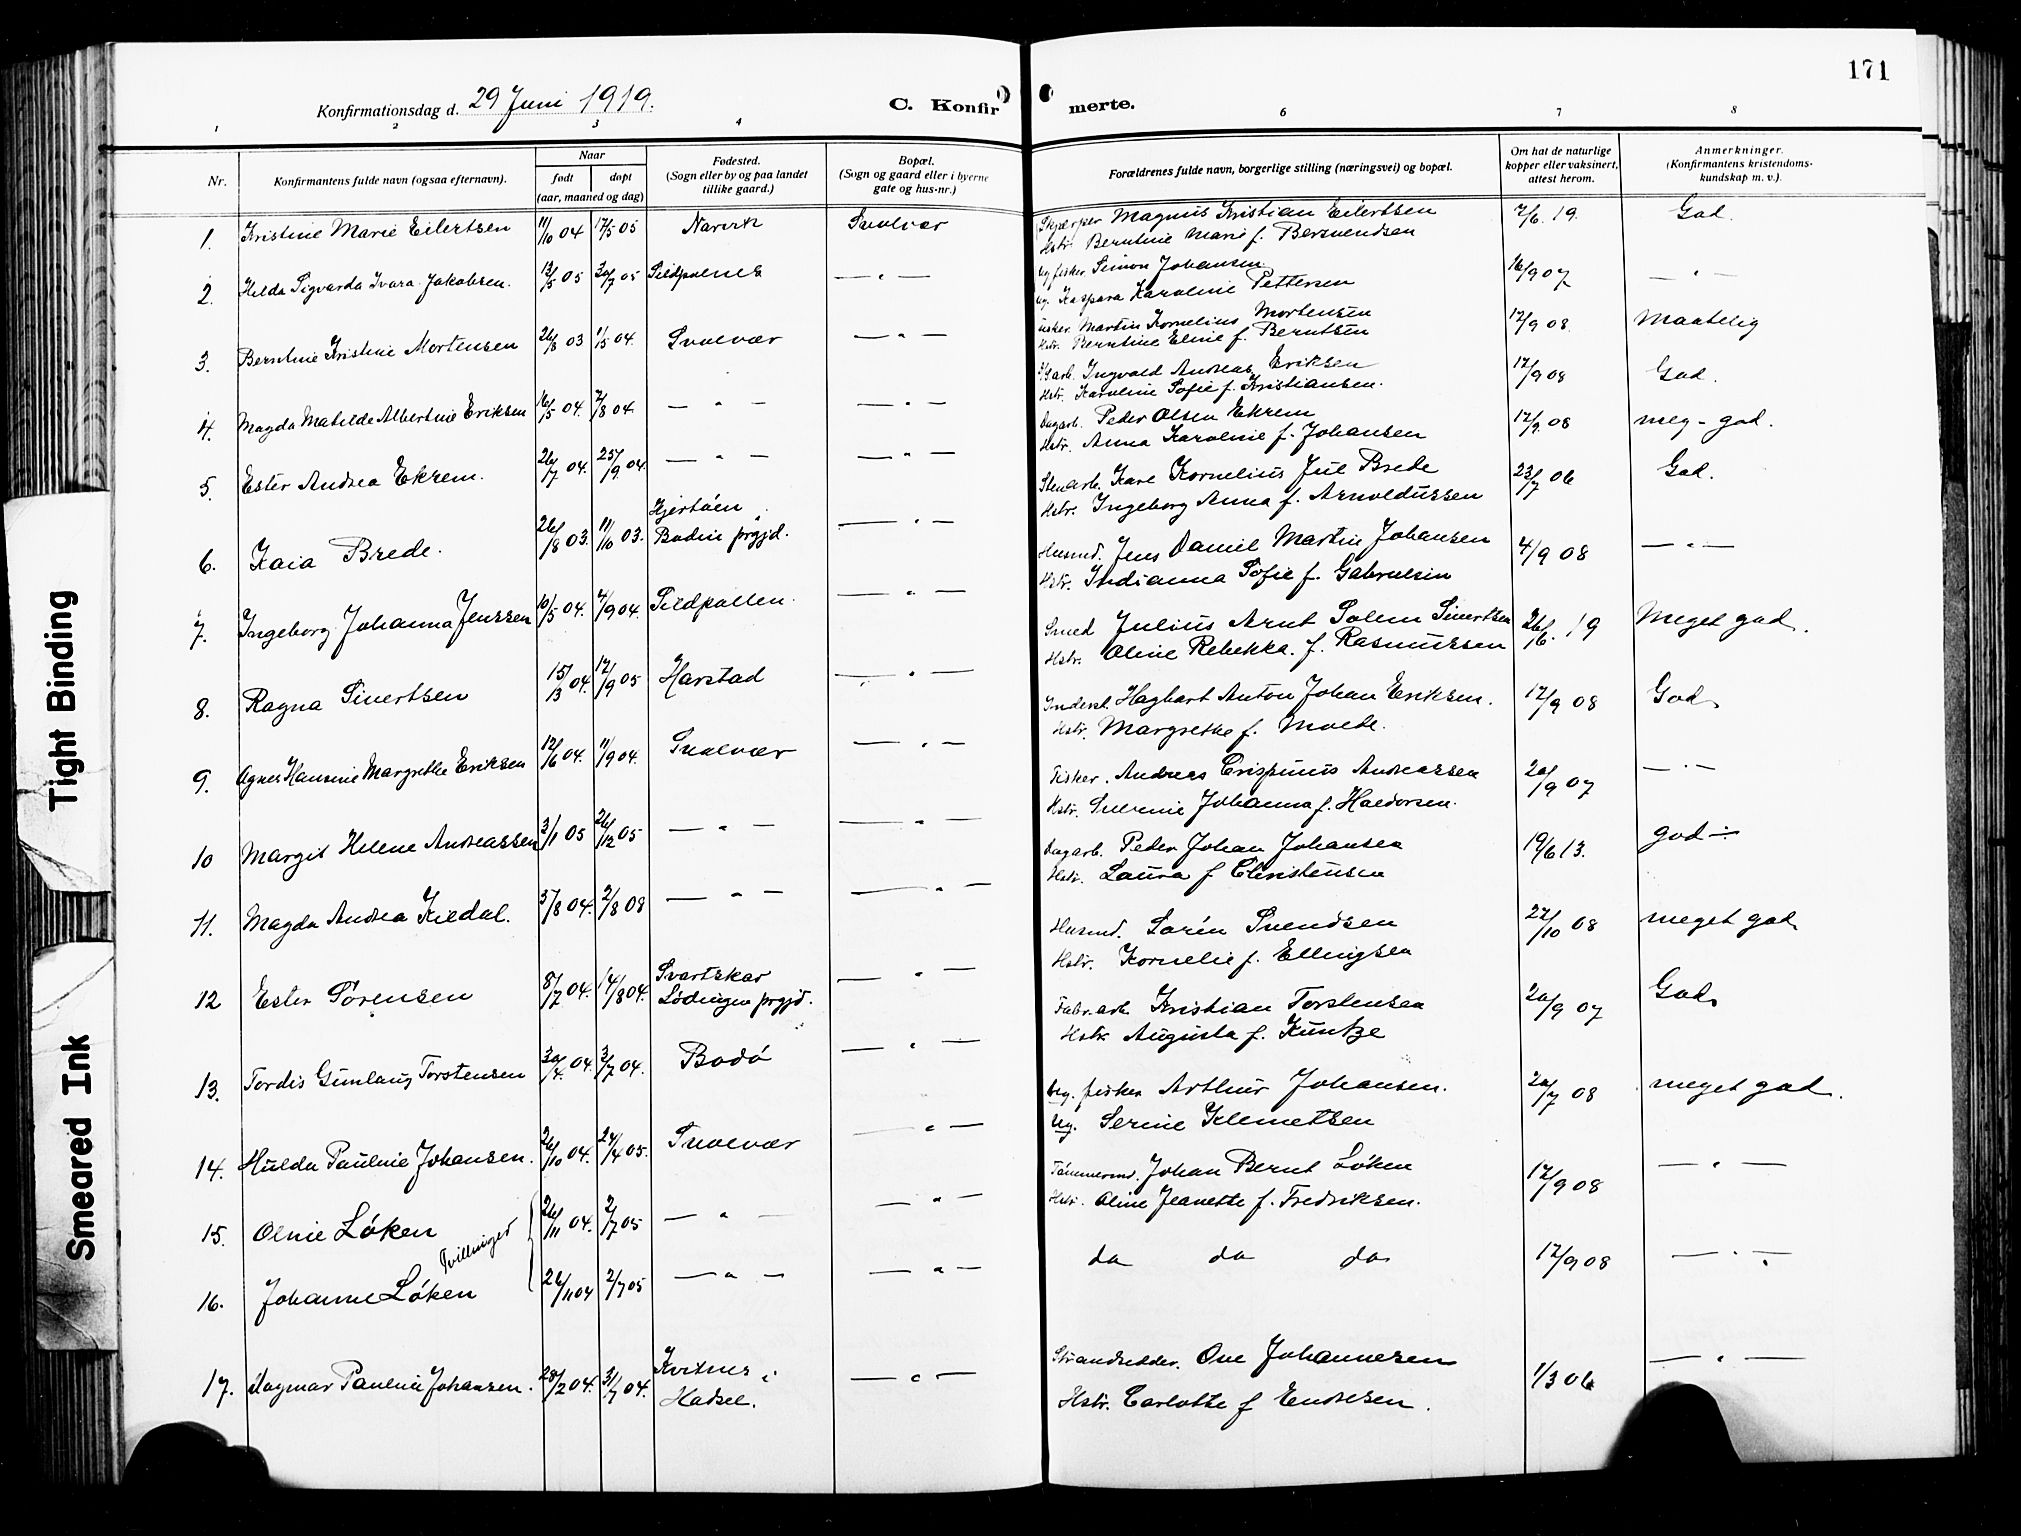 171
Konfirmationsdag d. 29 Juni 1919.
C. Konfir merte.
1 2 3 4 6 7 8
Nr.
Konfirmantens fulde navn (ogsaa efternavn).
Naar
født døpt
(aar, maaned og dag)
Fødested.
(Sogn eller by og paa landet
tillike gaard.)
Bopæl.
(Sogn og gaard eller i byerne
gate og hus-nr.)
Forældrenes fulde navn, borgerlige stilling (næringsvei) og bopæl.
Om hat de naturlige
kopper eller vaksinert,
attest herom.
Anmerkninger.
(Konfirmantens kristendoms-
kundskap m. v.).
1. Kristine Marie Eilertsen 11/10 04 17/5 05 Narvik Svolvær
Magnus Kristian Eilertsen 7/6. 19. God.
Hstr. Berntine Marie f.
2. Helda Sigvarda Ivara Jakobsen. 13/5 05 30/7 05 Sildpolnes — " —
Ug fisker Simon Johansen 16/9 07 — " —
Ug. Kaspara Karoline Pettersen
3. Berntine Kristine Mortensen 26/8 03 1/5 04. Svolvær — " —
Fisker Martin Kornelius Mortensen 17/9 08. Maatelig
Hstr. Berntine Eline f. Berntsen
4. Magda Matilde Albertine Eriksen 16/5 04. 7/8 04 — " — — " —
Ingvald Andreas Eriksen 17/9 08 God.
Hstr. Karoline Sofie f. Kristiansen.
5. Ester Andrea Ekrem. 26/7 04. 25/9 04. — " — — " —
Dagarb. Peder Olsen Ekrem 17/9. 08 meg - god.
Hstr. Anna Karoline f. Johansen
6. Kaia Brede. 26/8 03. 11/10 03. Hjertøen
Bodin prgjd. — " —
Stenarb. Kare Kornelius Jul Brede 23/7 06 God.
Hstr. Ingeborg Anna f. Arnoldussen
7. Ingeborg Johanna Jenssen 10/5 04. 4/9 04. Sildpollen. — " —
Husmd. Jens Daniel Martin Johansen 4/9 08 — " —
Hstr. Indianna Sofie f. Gabrielsen
8. Ragna Sivertsen 15/13 04. 17/9 05 Harstad — " —
Smed Julius Arnt Solem Sivertsen 26/6. 19 Meget god.
Hstr. Oline Rebekka. f. Rasmussen
9. Agnes Hansine Margrethe Eriksen 12/6 04. 11/9 04. Svolvær — " —
Inderst. Hagbart Anton Johan Eriksen. 17/9 08 God
Hstr. Margrethe f. Molde.
10 Margit Helene Andreassen 3/1 05 26/12 05 — " — — " —
Fisker. Andreas Crispinus Andreassen 20/9 07 — " —
Hstr. Severine Johanna f. Haldorsen.
11. Magda Andrea Kildal. 3/8 04. 2/8 08 — " — — " —
Dagarb. Peder Johan Johansen 19/6 13. god
Hstr. Laura f Christensen
12 Ester Sørensen 8/7 04. 14/8 04. Svartskar
Lødingen prgjd. — " —
Husmd. Sørén Svendsen 27/10 08 meget god
Hstr. Kornelie f. Ellingsen
13. Tordis Gunlaug Torstensen 30/4. 04. 3/7 04. Bodø — " —
Fabr.arb. Kristian Torstensen 20/9 07 God
Hstr Augusta f. Kuntze
14. Hulda Pauline Johansen. 26/10 04. 24/4 05. Svolvær — " —
Ug. fisker Arthur Johansen. 20/7 08 meget god.
Ug. Serine Klemetsen
15. Oline Løken 26/11 04. 2/7 05 — " — — " —
Tvillinger
Tømmermd. Johan Bernt Løken 17/9 08 — " —
Hstr. Oline Jeanette f. Fredriksen.
16. Johanne Løken 26/11 04 2/7 05 — " — — " —
do do do 17/9 08 — " —
17. Dagmar Pauline Johansen. 28/2 04. 31/7 04. Kvitnes i
Hadsel. — " —
Strandsidder. Ove Johannesen 1/3 06 — " —
Hstr. Carlotte f Endresen.
Tight Binding
Smeared Ink